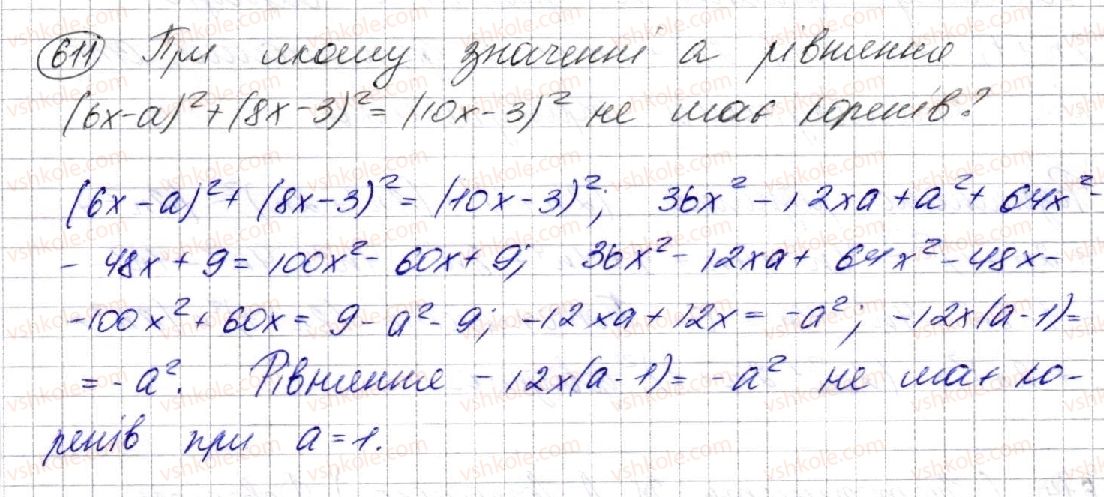 611 При якому значенні а рівняння
(6x-a)² + (8x-3)² = (10x-3)² не має коренів?
(6x-a)² + (8x-3)² = (10x-3)²; 36x² - 12xa + a² + 64x² -
- 48x + 9 = 100x² - 60x + 9; 36x² - 12xa + 64x² - 48x -
- 100x² + 60x = 9 - a² - 9; -12xa + 12x = -a²; -12x(a-1) =
= -a². Рівняння -12x(a-1) = -a² не має ко-
ренів при a = 1.